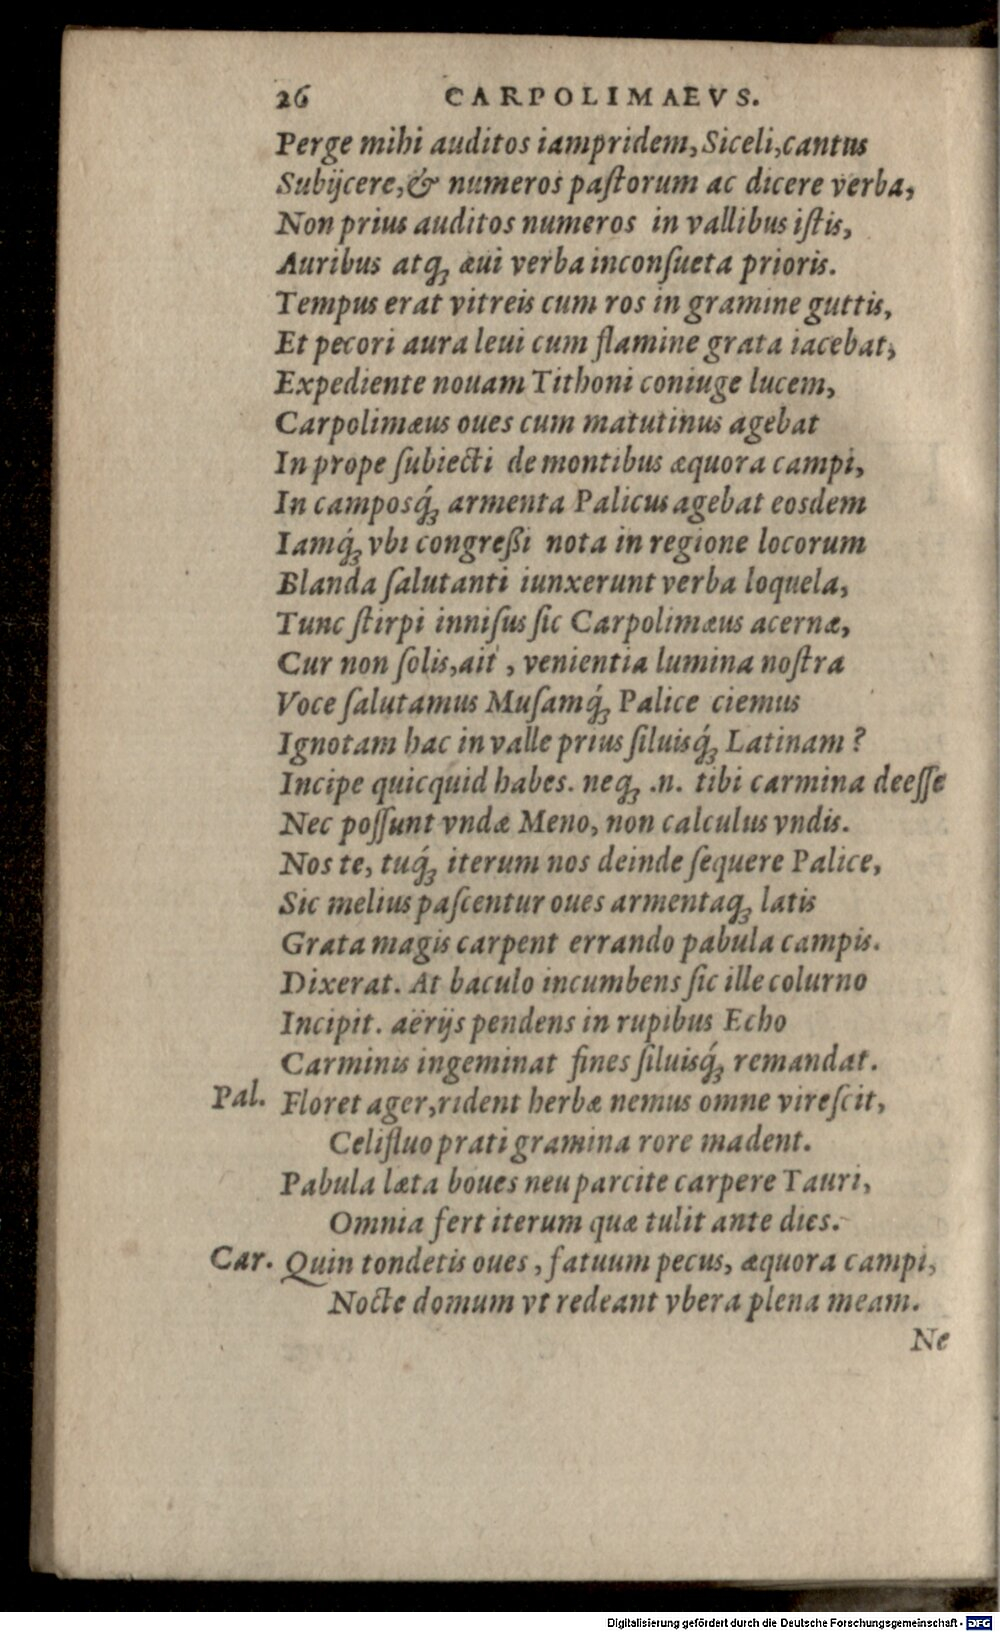 26 CARPOLIMAEVS.
Perge mihi auditos iampridem, Siceli, cantus
Subijcere, & numeros paſtorum ac dicere verba,
Non prius auditos numeros in vallibus iſtis,
Auribus atqꝫ æui verba inconſueta prioris.
Tempus erat vitreis cum ros in gramine guttis,
Et pecori aura leui cum flamine grata iacebat,
Expediente nouam Tithoni coniuge lucem,
Carpolimæus oues cum matutinus agebat
In prope ſubiecti de montibus æquora campi,
In camposq́ꝫ armenta Palicus agebat eosdem
Iamq́ꝫ vbi congreßi nota in regione locorum
Blanda ſalutanti iunxerunt verba loquela,
Tunc ſtirpi inniſus ſic Carpolimæus acernæ,
Cur non ſolis, ait, venientia lumina noſtra
Voce ſalutamus Muſamq́ꝫ Palice ciemus
Ignotam hac in valle prius ſiluisq́ꝫ Latinam?
Incipe quicquid habes. neqꝫ .n. tibi carmina deeſſe
Nec poſſunt vndæ Meno, non calculus vndis.
Nos te, tuq́ꝫ iterum nos deinde ſequere Palice,
Sic melius paſcentur oues armentaqꝫ latis
Grata magis carpent errando pabula campis.
Dixerat. At baculo incumbens ſic ille colurno
Incipit. aërijs pendens in rupibus Echo
Carminis ingeminat fines ſiluisq́ꝫ remandat.
Pal. Floret ager, rident herbæ nemus omne vireſcit,
Celifluo prati gramina rore madent.
Pabula læta boues neu parcite carpere Tauri,
Omnia fert iterum quæ tulit ante dies.
Car. Quin tondetis oues, fatuum pecus, æquora campi,
Nocte domum vt redeant vbera plena meam.
Ne
Digitalisierung gefördert durch die Deutsche Forschungsgemeinschaft - DFG